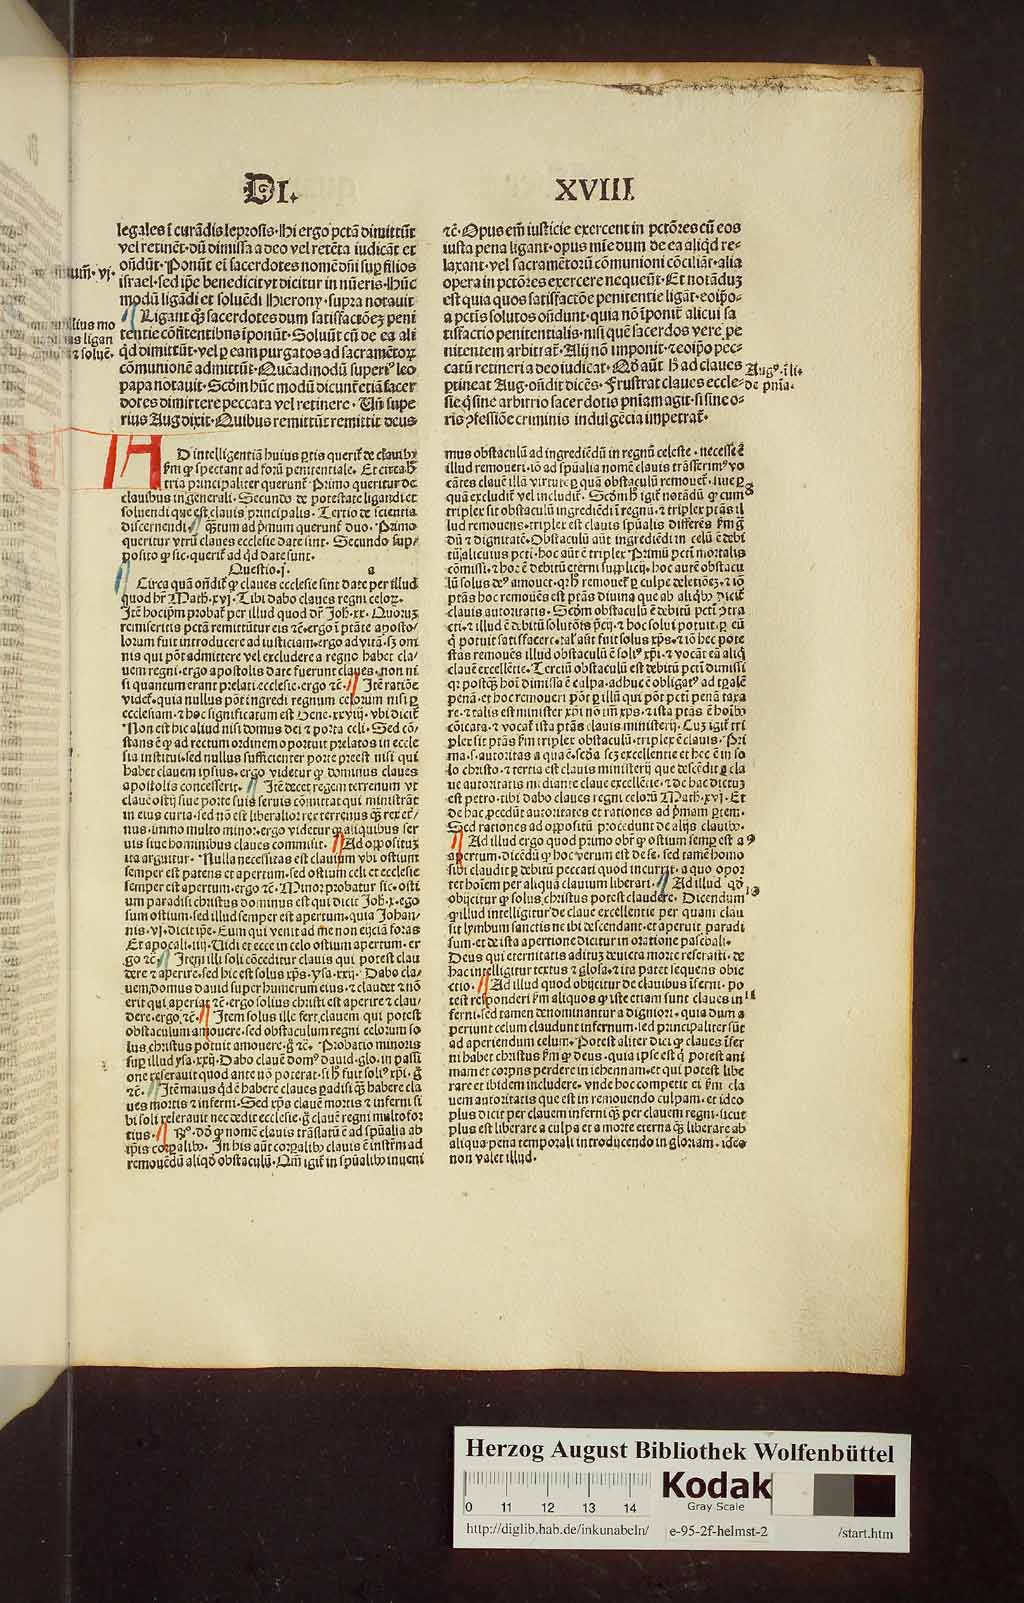 DI.
XVIII.
legales ĩ curãdis leprosis. Hi ergo pctã dimittũt
vel retinẽt. dũ dimissa a deo vel retẽta iudicãt et
oñdũt. Ponũt eĩ sacerdotes nomẽ dñi sup filios
israel. sed ipe benedicit vt dicitur in nũeris. Hũc
modũ ligãdi et soluẽdi Hierony. supra notauit
Ligant qꝫ sacerdotes dum satisfactõeꝫ peni
tentie cõfitentibus ĩponũt. Soluũt cũ de ea ali
qd dimittũt. vel p eam purgatos ad sacramẽtoꝝ
cõmunionẽ admittũt. Quẽadmodũ superiꝰ leo
papa notauit. Scdm hũc modũ dicunt etiã sacer
dotes dimittere peccata vel retinere. Vñ supe
rius Aug dixit. Quibus remittũt remittit deus
ꝛc̃. Opus em̃ iusticie exercent in pctõres cũ eos
iusta pena ligant. opus mie dum de ea aliqd re-
laxant. vel sacramẽtorũ cõmunioni cõciliãt. alia
opera in pctõres exercere nequeũt. Et notãduꝫ
est quia quos satisfactõe penitentie ligãt. eoipõ-
a pctis solutos oñdunt. quia nõ ĩponit alicui sa
tisfactio penitentialis. nisi quẽ sacerdos vere pe
nitentem arbitrat. Alij nõ imponit. ⁊ eoipõ pec-
catũ retineri a deo iudicat. Qd aũt h̃ ad claues
ptineat Aug. oñdit dicẽs. Frustrat claues eccle-
sie q̃ sine arbitrio sacerdotis pniam agit. si sine o-
ris ꝯfessiõe criminis indulgẽcia impetrat.
Augꝰ. ĩ li.
de pnia.
AD intelligentiã huius ptis querit de clauibꝫ
fm ꝙ spectant ad forũ penitentiale. Et circa h̃
tria principaliter querunt. Primo queritur de
clauibus in generali. Secundo de potestate ligandi et
soluendi que est clauis principalis. Tertio de scientia
discernendi. Qutum ad pmum querunt duo. Primo
queritur vtrũ claues ecclesie date sint. Secundo sup-
posito ꝙ sic. querit ad qd date sunt.
Questio .j. a
Circa quã oñdit ꝙ claues ecclesie sint date per illud
quod hr Math. xvj. Tibi dabo claues regni celoꝝ.
Itẽ hoc ipm probat per illud quod dr Joh. xx. Quoruꝫ
remiseritis pctã remittũtur eis ꝛc̃. ergo ĩ ptãte aposto-
lorum fuit introducere ad iusticiam. ergo ad vitã. sꝫ om
nis qui põt admittere vel excludere a regno habet cla-
uem regni. ergo apostolis date fuerunt claues. non ni
si quantum erant prelati ecclesie. ergo ꝛc̃. Itẽ ratiõe
videt. quia nullus põt ingredi regnum celorum nisi p
ecclesiam. ⁊ hoc significatum est Gene. xxviij. vbi dicit
Non est hic aliud nisi domus dei ⁊ porta celi. Sed cõ-
stans ẽ ꝙ ad rectum ordinem oportuit prelatos in eccle
sia institui. sed nullus sufficienter porte preest nisi qui
habet clauem ipsius. ergo videtur ꝙ dominus claues
apostolis concesserit. Itẽ decet regem terrenum vt
claues ostij siue porte suis seruis cõmittat qui ministrãt
in eius curia. sed nõ est liberalior rex terrenus qꝫ rex et̃-
nus. immo multo minor. ergo videtur ꝙ aliquibus ser
uis siue hominibus claues commisit. Ad oppositum
ita arguitur. Nulla necessitas est clauium vbi ostium
semper est patens et apertum. sed ostium celi et ecclesie
semper est apertum. ergo ꝛc̃. Minor probatur sic. osti
um paradisi christus dominus est qui dicit Joh. x. ego
sum ostium. sed illud semper est apertum. quia Johan-
nis. vj. dicit ipe. Eum qui venit ad me non eijciã foras
Et apocali. iiij. Uidi et ecce in celo ostium apertum. er
go ꝛc̃. Item illi soli cõceditur clauis qui potest clau
dere ⁊ aperire. sed hic est solus xp̃s. ysa. xxij. Dabo cla-
uem domus dauid super humerum eius. ⁊ claudet ⁊ nõ
erit qui aperiat ꝛc̃. ergo solius christi est aperire ⁊ clau-
dere. ergo ꝛc̃. Item solus ille fert clauem qui potest
obstaculum amouere. sed obstaculum regni celorum so
lus christus potuit amouere. g̃ ꝛc̃. Probatio minoris
sup illud ysa. xxij. Dabo clauẽ domꝰ dauid. glo. in passi
one reserauit quod ante nõ poterat. si h̃ fuit solꝰ xpi. g̃
ꝛc̃. Itẽ maius qd ẽ habere claues padisi qꝫ habere cla
ues mortis ⁊ inferni. Sed xp̃s clauẽ mortis ⁊ inferni si
bi soli reserauit nec cedit ecclesie. g̃ clauẽ regni multo for
tius. Rº. dd ꝙ nomẽ clauis trãslatũ ẽ ad spũalia ab
ipis corpalibꝫ. In his aũt corpalibꝫ clauis ẽ instrm ad
remouẽdũ aliqd obstaculũ. Qm igit in spũalibꝫ inueni
mus obstaculũ ad ingrediẽdũ in regnũ celeste. necesse ẽ
illud remoueri. iõ ad spũalia nomẽ clauis trãsferimꝰ vo
cãtes clauẽ illã virtutẽ p quã obstaculũ remouet. siue p
quã excludit vel includit. Scdm h̃ igit notãdũ ꝙ cum
triplex sit obstaculũ ingrediẽdi ĩ regnũ. ⁊ triplex ptãs il
lud remouens. triplex est clauis spũalis differẽs fm g̃
dũ ⁊ dignitatẽ. Obstaculũ aũt ingrediẽdi in celũ ẽ debi
tũ alicuius pcti. hoc aũt ẽ triplex Primũ pctm mortalis
cõmissi. ⁊ hoc ẽ debitũ eterni supplicij. hoc aũt obstacu
lũ solus deꝰ amouet. qꝛ h̃ remouet p culpe deletõeꝫ. ⁊ iõ
ptãs hoc remouẽs est ptãs diuina que ab aliqbꝫ dicit
clauis autoritatis. Scdm obstaculũ ẽ debitũ pcti ꝯtra
cti. ⁊ illud ẽ debitũ solutõis pcij. ⁊ hoc solui potuit p eũ
q̃ potuit satisfacere. talꝰ aũt fuit solus xp̃s. ⁊ iõ hec pote
stas remouẽs illud obstaculũ ẽ solꝰ xpi. ⁊ vocãt eã aliq̃
clauẽ excellẽtie. Terciũ obstaculũ est debitũ pcti dimissi
qꝛ postqꝫ hoĩ dimissa ẽ culpa. adhuc ẽ obligatꝰ ad tpalẽ
penã. et hoc remoueri põt p illũ qui põt pcti penã taxa
re. ⁊ talis est minister xpi nõ im̃ xp̃s. ⁊ ista ptãs ẽ hoĩbꝫ
cõicata. ⁊ vocat ista ptãs clauis ministerij. Cuꝫ igit tri
plex sit ptãs fm triplex obstaculũ. triplex ẽ clauis. Pri
ma. s. autoritas a qua ẽ. scda scꝫ excellentie et hec ẽ in so
lo christo. ⁊ tertia est clauis ministerij que descẽdit p cla
ue autoritatis mediante claue excellẽtie. ⁊ de hac dictuꝫ
est petro. tibi dabo claues regni celorũ Math. xvj. Et
de hac pcedũt autoritates et rationes ad pmam ptem.
Sed rationes ad oppositũ procedunt de alijs clauibꝫ.
Ad illud ergo quod primo obr ꝙ ostium semp est a
pertum. Dicẽdũ ꝙ hoc verum est de se. sed tamẽ homo
sibi claudit p debitũ peccati quod incurrit. a quo opor
tet hoĩem per aliquã clauium liberari. Ad illud qd
obijcitur ꝙ solus christus potest claudere. Dicendum
ꝙ illud intelligitur de claue excellentie per quam clau
sit lymbum sanctis ne ibi descendant. et aperuit paradi
sum. et de ista apertione dicitur in oratione paschali.
Deus qui eternitatis adituꝫ deuicta morte reserasti. de
hac intelligitur textus ⁊ glosa. ⁊ ita patet sequens obie
ctio. Ad illud quod obijcitur de clauibus ĩferni. po
test responderi fm aliquos ꝙ iste etiam sunt claues in
ferni. sed tamen denominantur a digniori. quia dum a
periunt celum claudunt infernum. sed principaliter sũt
ad aperiendum celum. Potest aliter dici ꝙ claues ĩfer
ni habet christus fm ꝙ deus. quia ipse est q̃ potest ani
mam et corpus perdere in iehennam. et qui potest libe
rare et ibidem includere. vnde hoc competit ei fm cla
uem autoritatis que est in remouendo culpam. et ideo
plus dicit per clauem inferni qꝫ per clauem regni. sicut
plus est liberare a culpa et a morte eterna qꝫ liberare ab
aliqua pena temporali introducendo in gloriam. ideo
non valet illud.
8
9
10
11
Herzog August Bibliothek Wolfenbüttel
0 11 12 13 14
Kodak
Gray Scale
http://diglib.hab.de/inkunabeln/ e-95-2f-helmst-2 /start.htm